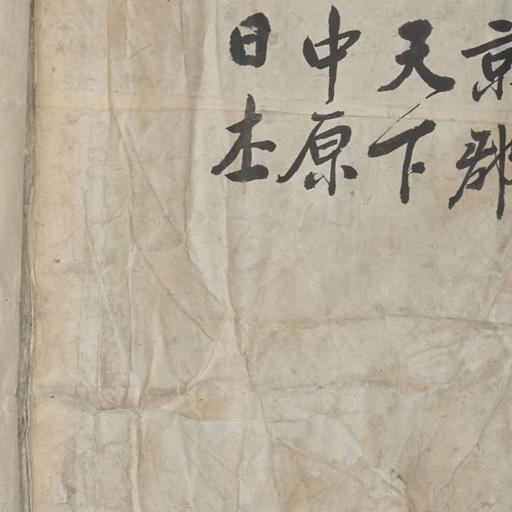 京都
天下
中原
日本